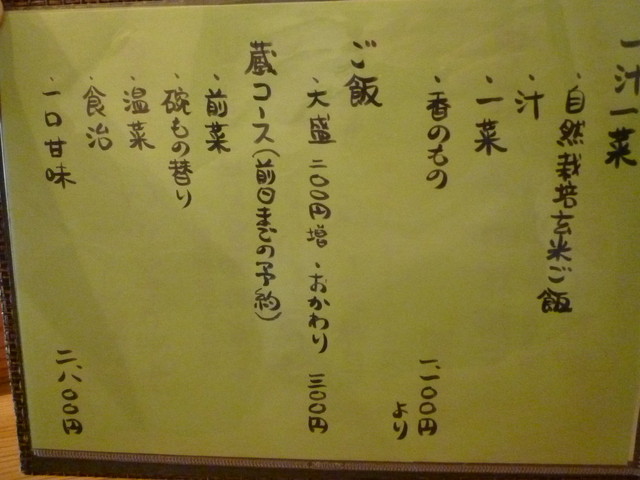 一汁一菜
・自然栽培玄米ご飯
・汁
・一菜
・香のもの
一、一〇〇円
より
ご飯
・大盛 二〇〇円増 ・おかわり 三〇〇円
蔵コース(前日までの予約)
・前菜
・碗もの替り
・温菜
・食治
・一口甘味
二、八〇〇円